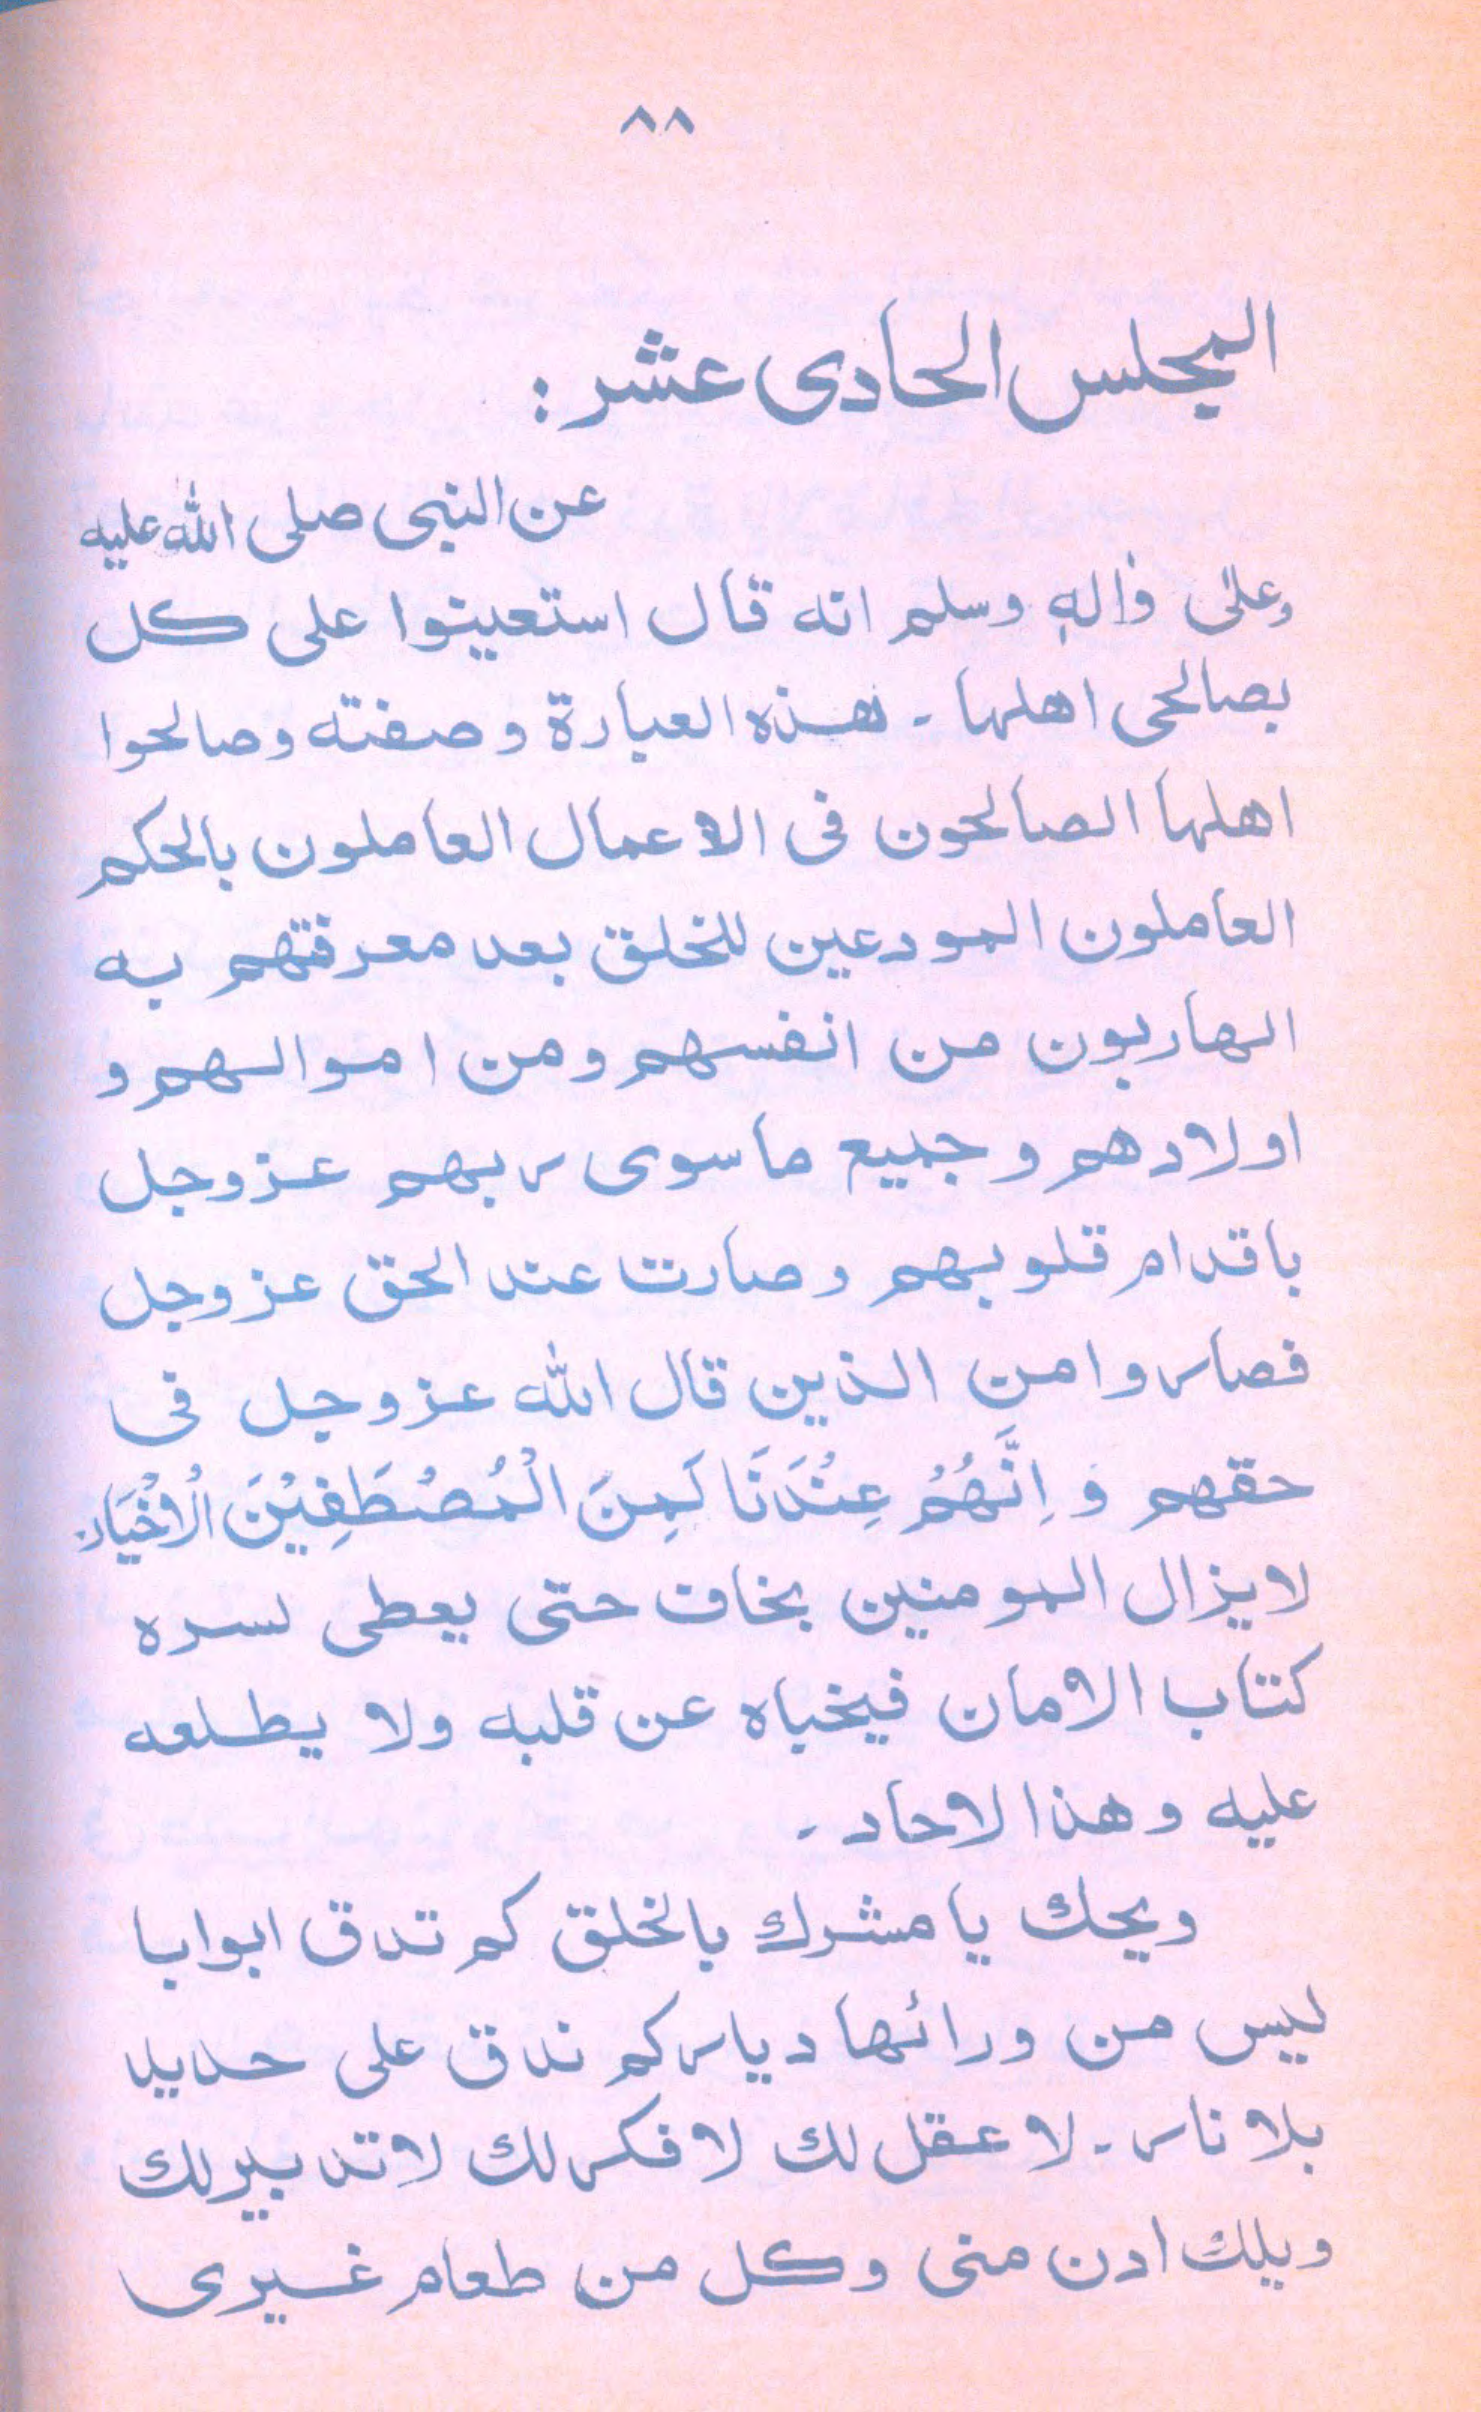 ٨٨
المجلس الحادى عشر :
عن النبى صلى الله عليه
وعلى واٰله وسلم انه قال استعينوا على كل
بصالحى اهلها ـ هذه العبارة وصفته وصالحوا
اهلها الصالحون فى الاعمال العاملون بالحكم
العاملون المودعين للخلق بعد معرفتهم به
الهاربون من انفسهم ومن اموالهم و
اولادهم وجميع ما سوى ربهم عزوجل
باقدام قلوبهم وصارت عند الحق عزوجل
فصاروا من الذين قال الله عزوجل فى
حقهم وَ اِنَّهُمْ عِنْدَنَا لَمِنَ الْمُصْطَفِيْنَ الْاَخْيَار
لايزال المومنين بخاف حتى يعطى لسره
كتاب الامان فيخباه عن قلبه ولا يطلعه
عليه وهذا لاحاد ـ
ويحك يا مشرك بالخلق كم تدق ابوابا
ليس من ورائها ديار كم ندق على حديد
بلا نار ـ لا عقل لك لا فكر لك لا تدبير لك
ويلك ادن منى وكل من طعام غيرى